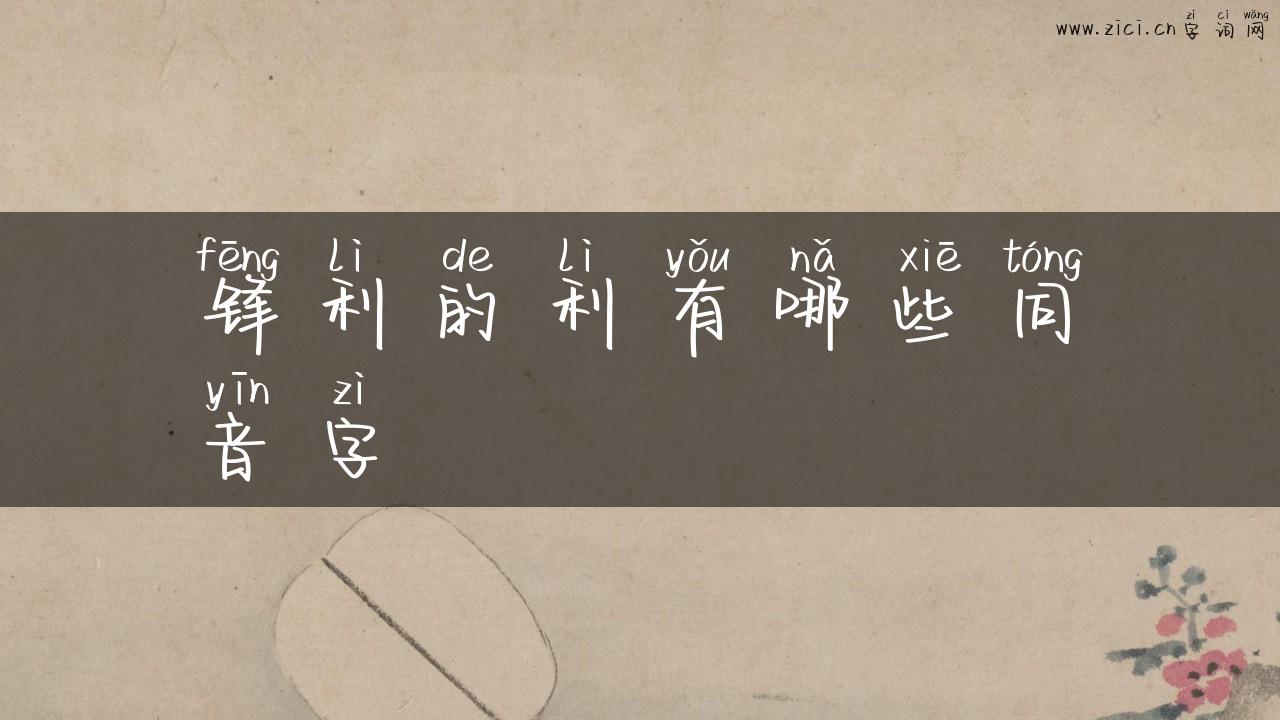 zì cí wǎng
www.zici.cn字词网
fēng lì de lì yǒu nǎ xiē tóng
锋利的利有哪些同
yīn zì
音字